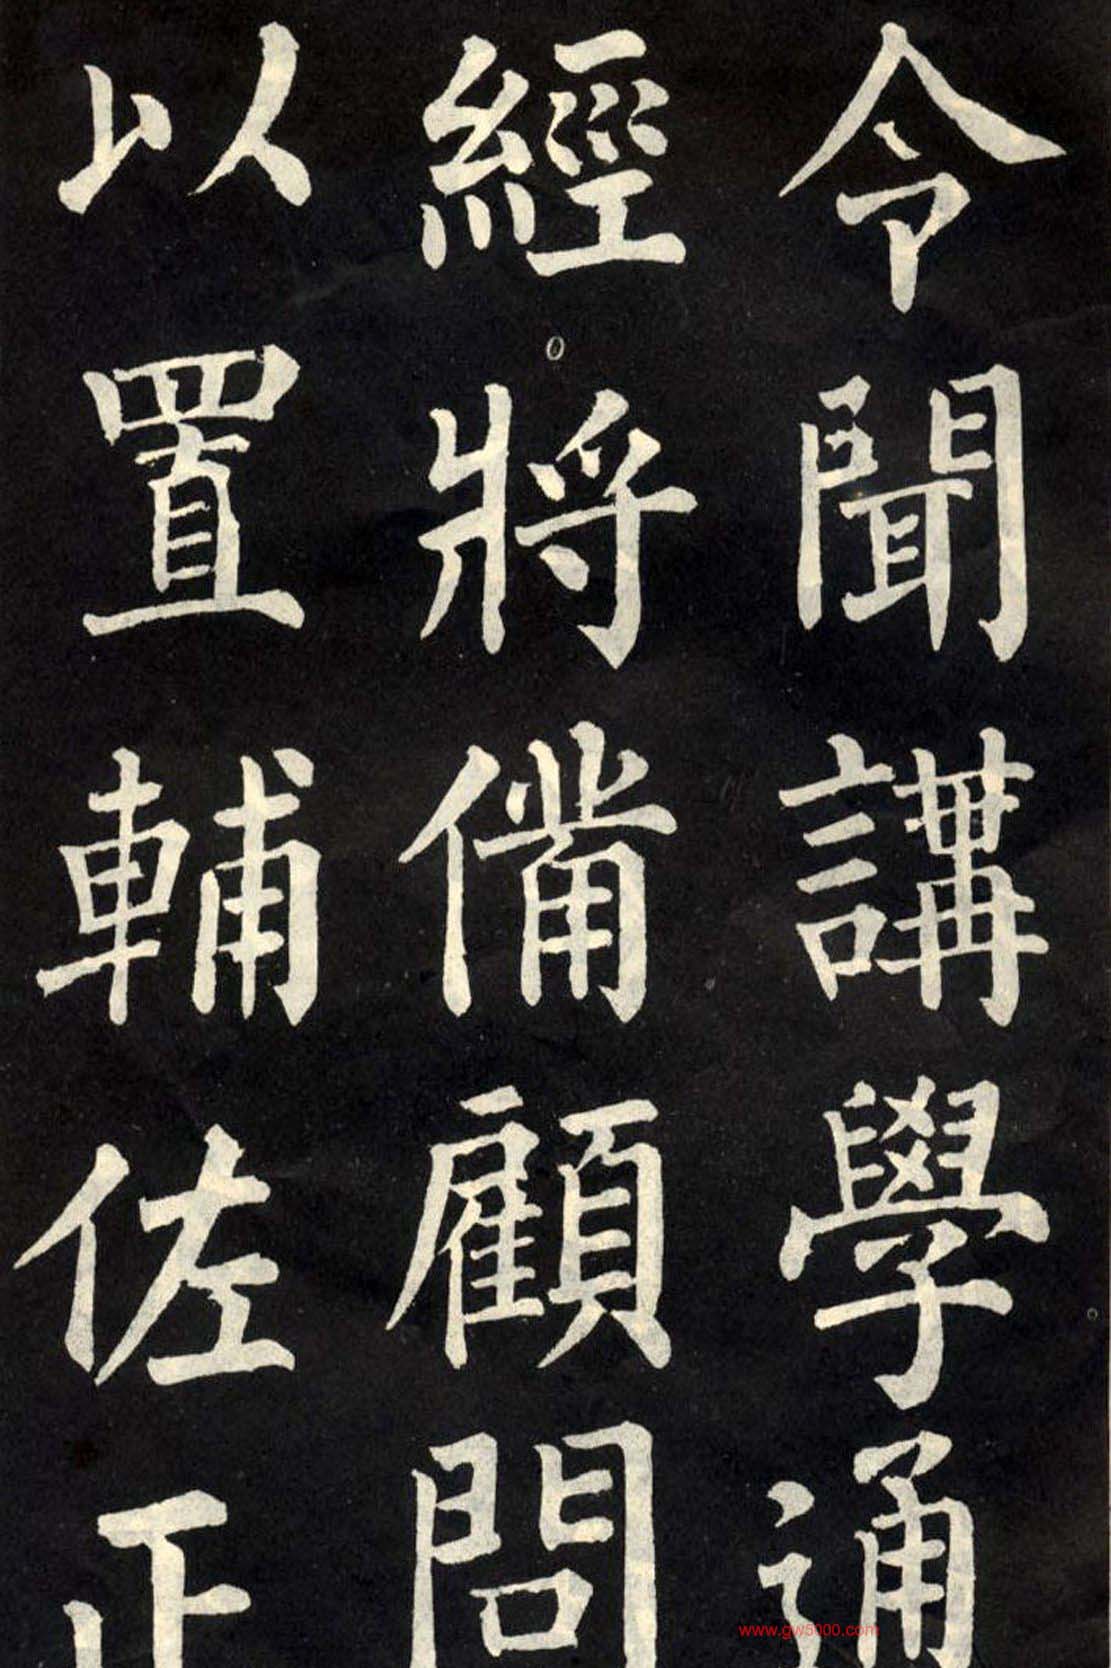 令聞講學通
經將備顧問
以置輔佐正
www.gw5000.com